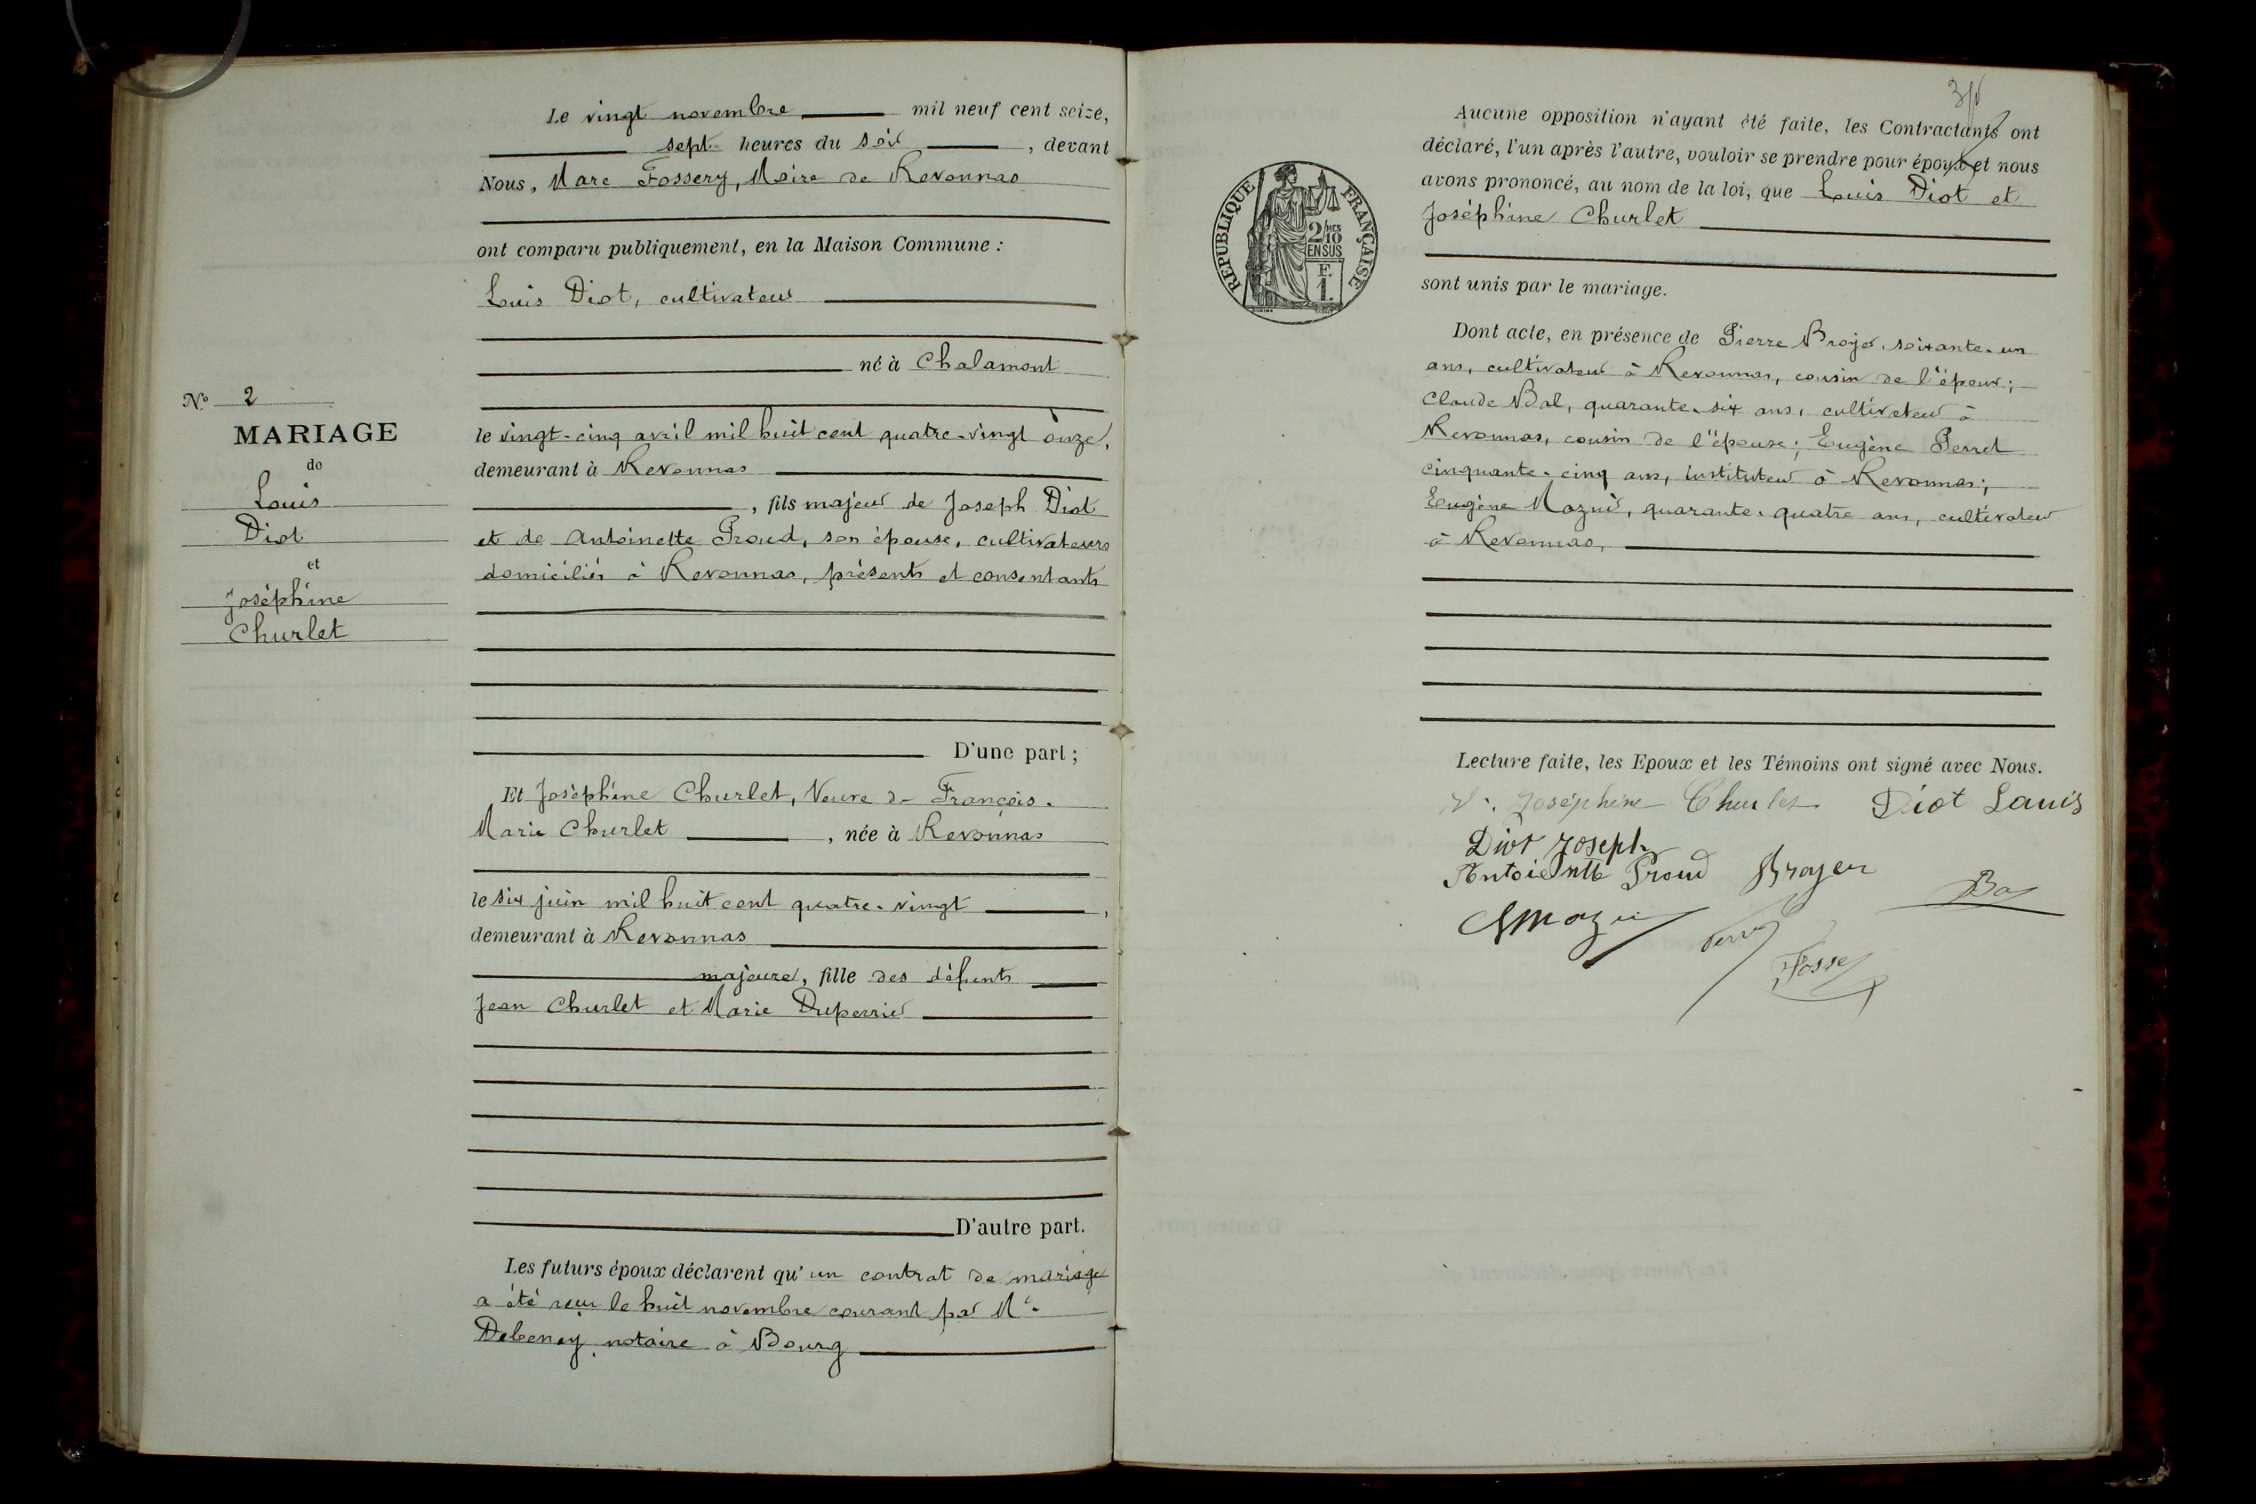 Le vingt novembre mil neuf cent seize,
sept heures du soir, devant
Nous, Marc Fossery, Maire de Revonnas
ont comparu publiquement, en la Maison Commune :
Louis Diot, cultivateur
né à Chalamont
le vingt-cinq avril mil huit cent quatre-vingt onze,
demeurant à Revonnas
, fils majeur de Joseph Diot
et de Antoinette Proud, son épouse, cultivateurs
domiciliés à Revonnas, présents et consentants
D'une part ;
Et Joséphine Churlet, Veuve de François-
Marie Churlet, née à Revonnas
le six juin mil huit cent quatre-vingt,
demeurant à Revonnas
majeure, fille des défunts
Jean Churlet et Marie Duperrier
D'autre part.
Les futurs époux déclarent qu'un contrat de mariage
a été reçu le huit novembre courant par Me
Debeney notaire à Bourg
No 2
MARIAGE
de
Louis
Diot
et
Joséphine
Churlet
RÉPUBLIQUE FRANÇAISE
2/10MES
EN SUS
F.
1.
Aucune opposition n'ayant été faite, les Contractants ont
déclaré, l'un après l'autre, vouloir se prendre pour époux et nous
avons prononcé, au nom de la loi, que Louis Diot et
Joséphine Churlet
sont unis par le mariage.
Dont acte, en présence de Pierre Broyer, soixante-un
ans, cultivateur à Revonnas, cousin de l'époux ;
Claude Bal, quarante-six ans, cultivateur à
Revonnas, cousin de l'épouse ; Eugène Perret
cinquante-cinq ans, instituteur à Revonnas ;
Eugène Mazuir, quarante-quatre ans, cultivateur
à Revonnas,
Lecture faite, les Epoux et les Témoins ont signé avec Nous.
Joséphine Churlet Diot Louis
Diot Joseph
Proud Broyer